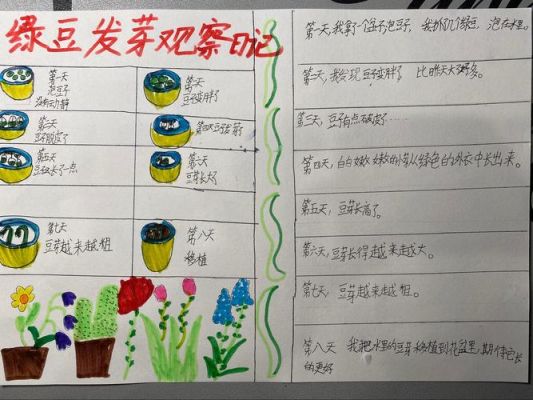 绿豆发芽观察日记
第一天
泡豆子
没有动静
第二天
豆子变胖了
第三天
豆子脱皮了
第四天豆发芽了
第五天
豆芽长了一点
第六天
豆芽长大了
第七天
豆芽越来越粗
第八天
移植
第一天,我拿了个盆子泡豆子,我抓几个绿豆,泡在水里。
第二天,我发现豆子变胖了,比昨天大了好多。
第三天,豆子有点破皮了……
第四天,白白嫩嫩的芽从绿色的外衣中长出来。
第五天,豆芽长高了。
第六天,豆芽长得越来越大。
第七天,豆芽越来越粗。
第八天 我把水里的豆芽移植到花盆里,期待它长
的更好